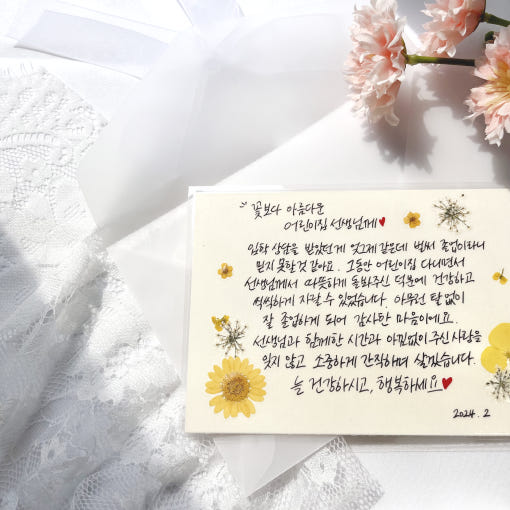 꽃보다 아름다운
어린이집 선생님께
입학 상담을 받았던게 엊그제 같은데 벌써 졸업이라니
믿지 못할 것 같아요. 그동안 어린이집 다니면서
선생님께서 따뜻하게 돌봐주신 덕분에 건강하고
씩씩하게 자랄 수 있었습니다. 아무런 탈 없이
잘 졸업하게 되어 감사한 마음이에요.
선생님과 함께한 시간과 아낌없이 주신 사랑을
잊지 않고 소중하게 간직하며 살겠습니다.
늘 건강하시고, 행복하세요
2024. 2